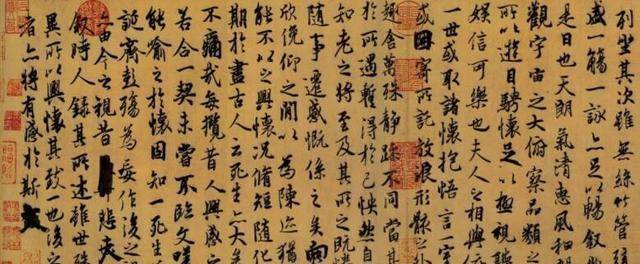 列坐其次雖無絲竹管弦
盛一觴一詠亦足以暢敘
是日也天朗氣清惠風和
觀宇宙之大俯察品類之
所以遊目騁懷足以極視聽
娛信可樂也夫人之相與
一世或取諸懷抱悟言一室
或因寄所託放浪形骸之外
趣舍萬殊靜躁不同當其
於所遇暫得於己怏然自
知老之將至及其所之既
隨事遷感慨係之矣向
欣俛仰之閒以為陳迹猶
能不以之興懷況脩短隨化
期於盡古人云死生亦大矣
不痛哉每攬昔人興感之
若合一契未嘗不臨文嗟
能喻之於懷固知一死生
誕齊彭殤為妄作後之
亦由今之視昔悲夫
敘時人錄其所述雖世殊
異所以興懷其致一也後之
者亦將有感於斯